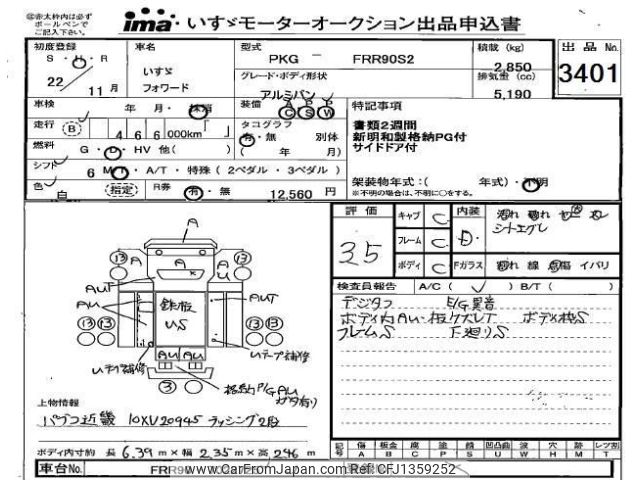 ㊟赤太枠内は必ず
ボールペンで
ご記入下さい。
ima いすゞモーターオークション出品申込書
初度登録 車名 型式 積載(kg) 出品No.
S・H・R いすゞ PKG － FRR90S2 2,850 3401
22 11月 フォワード グレード・ボディ形状 排気量(cc)
アルミバン 5,190
車検 年 月・抹消 装備 A P P C S W 特記事項
走行 B 466 000km タコグラフ 書類2週間
有・無 別体 新明和製格納PG付
燃料 G・D・HV 他( ) ( 年 月) サイドドア付
シフト 6 MT・A/T・特殊(2ペダル・3ペダル)
色 白 (指定) R券 有・無 12,560 円
架装物年式:( 年式)・不明
※不明の場合は、不明に○をする。
評価 キャブ C 内装 D
35 フレーム C シートエグレ
ボディ C Fガラス 割れ 線 点傷 イバリ
検査員報告 A/C( ) B/T( )
デジタコ E/G異音
ボディ内AU・板クズレT ボディ枠S
フレームS 下廻りS
A
13 A A 13
A U
AUT
AU 鉄板 AUT
US
13 13 13 13
AU AU
3
格納P/G AU
上物情報
パブコ近畿 10XV20945 ラッシング2段
ボディ内寸約 長 6.39 m×幅 2.35 m×高 2.46 m
記号 傷 板金 腐 塗 錆 凹凸曲 波 穴 跡 レツ割
A B C P S U W H M T
車台No. FRR90
www.CarFromJapan.com Ref CFJ1359252